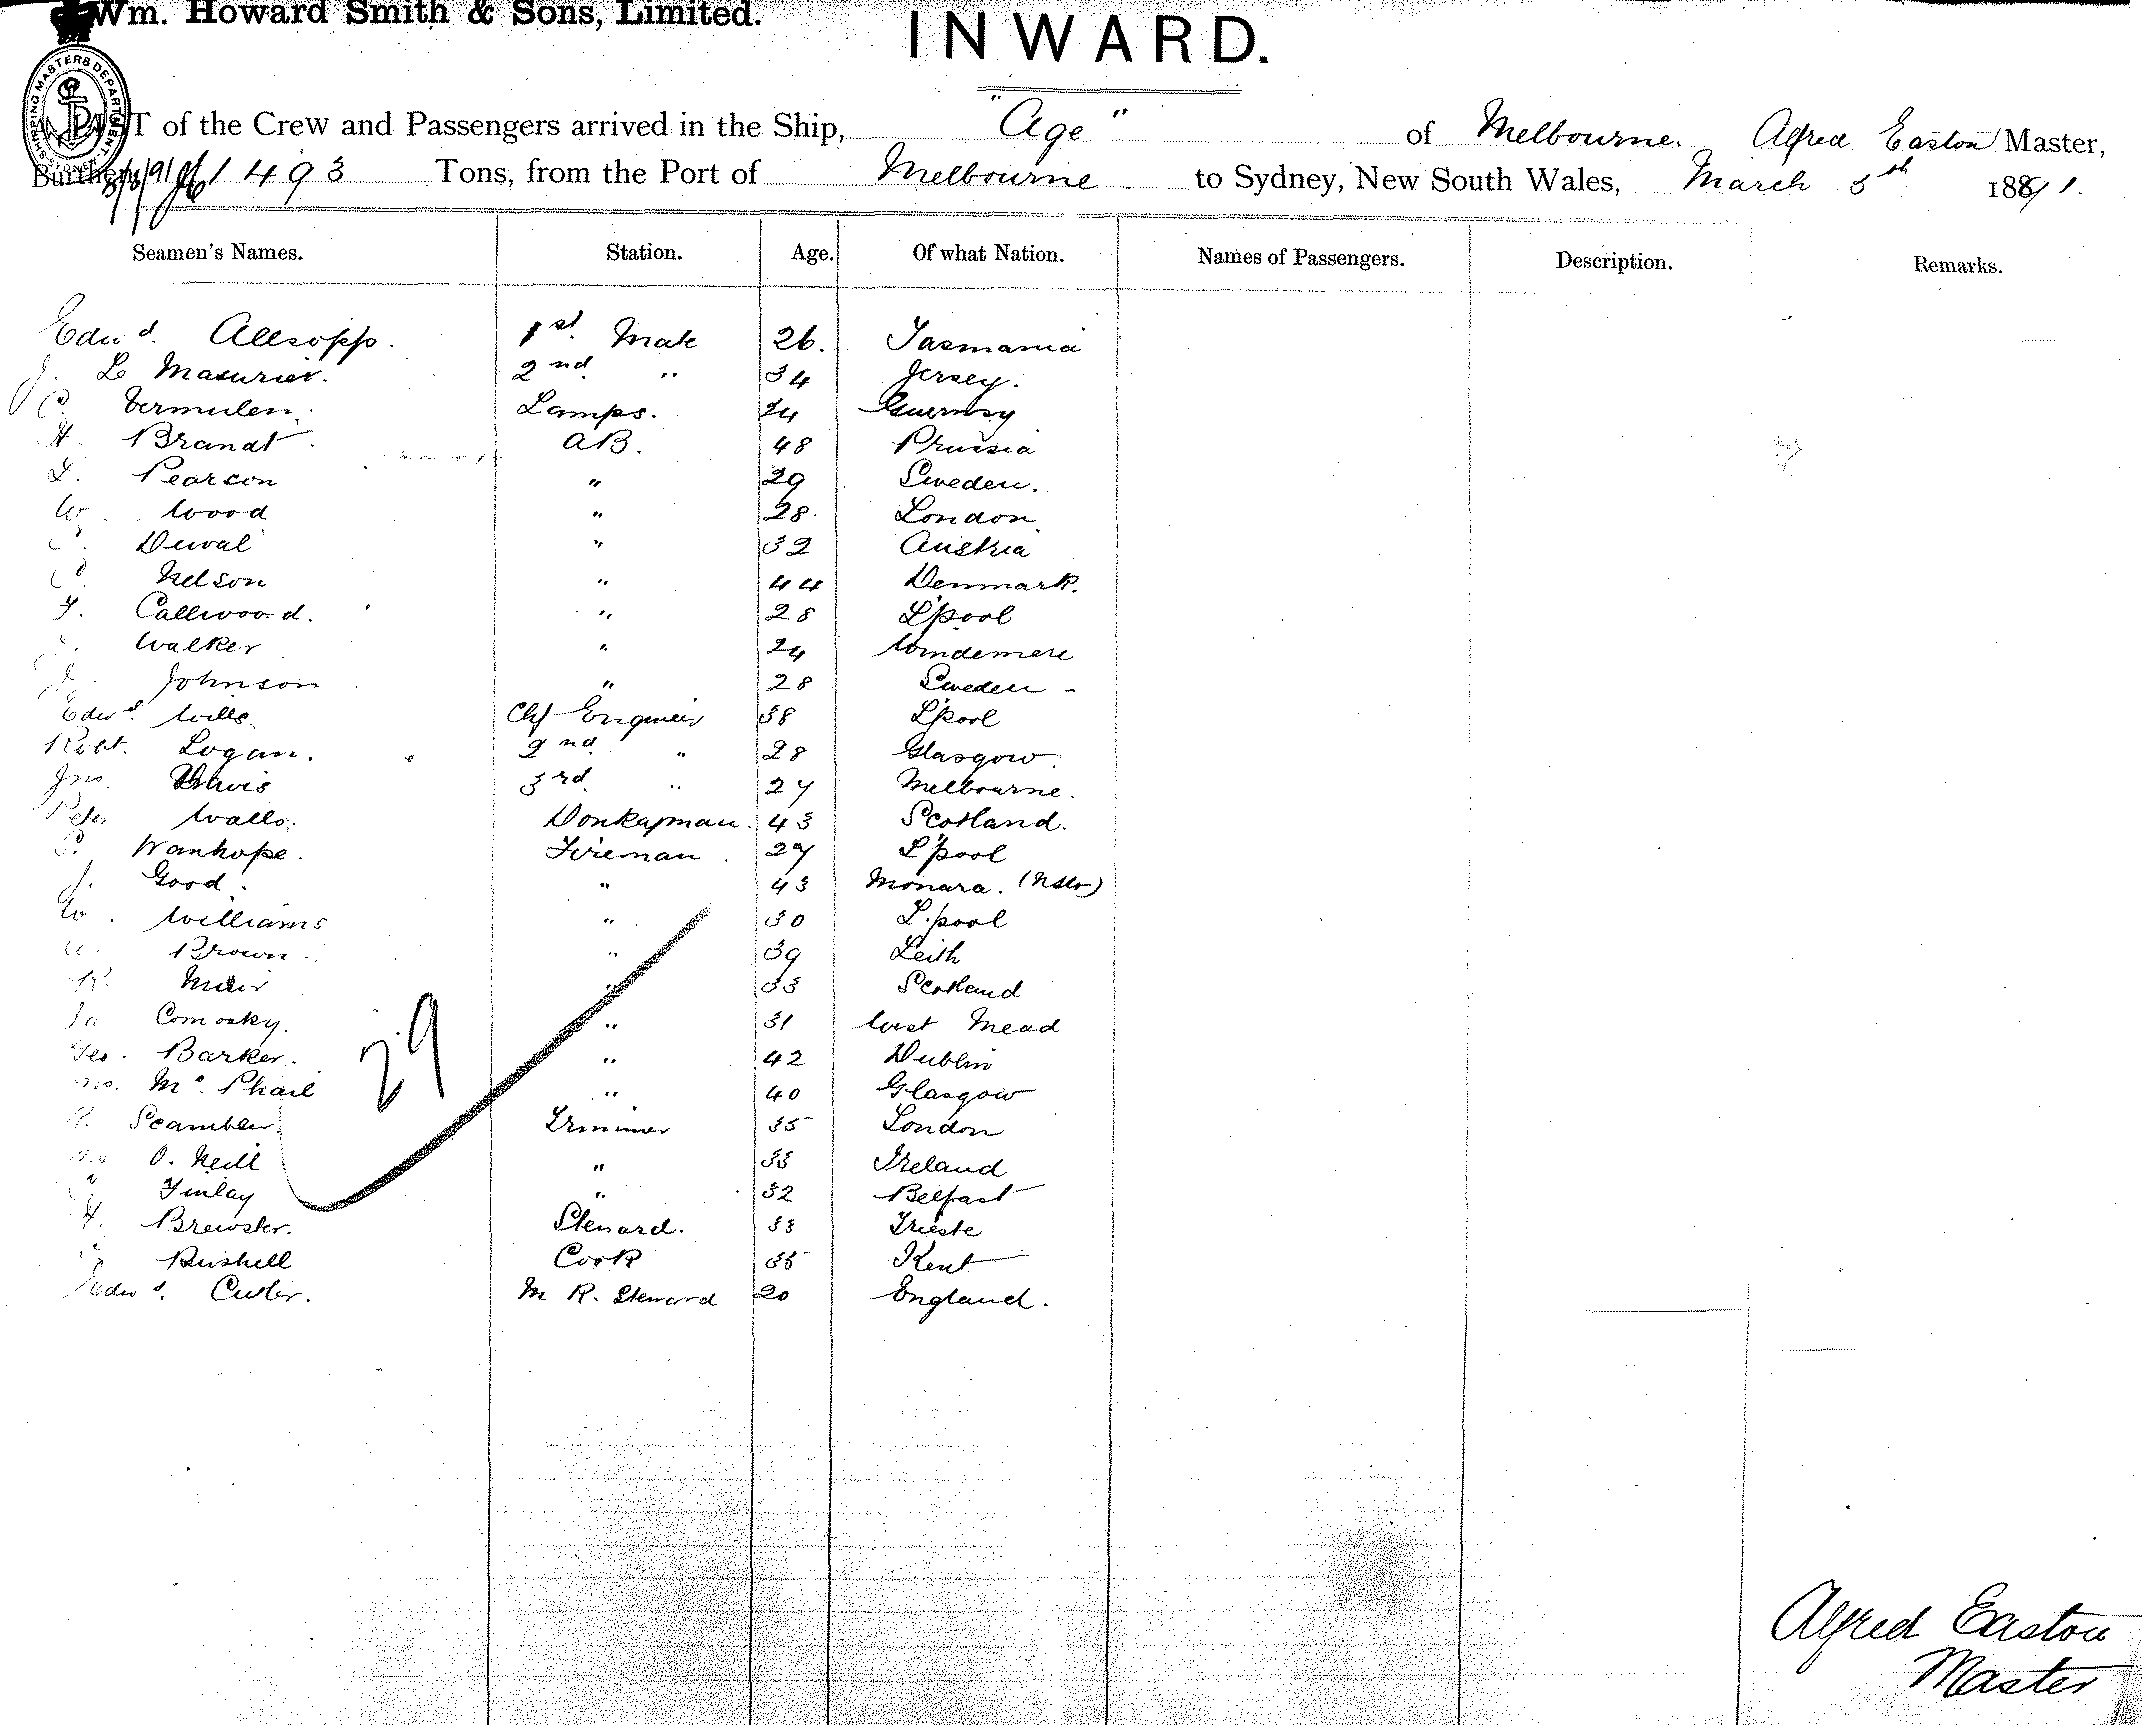 Wm. Howard Smith & Sons, Limited.
INWARD.
SHIPPING MASTERS DEPARTMENT
LIST of the Crew and Passengers arrived in the Ship, "Age" of Melbourne. Alfred Easton Master,
Burthen 1493 Tons, from the Port of Melbourne to Sydney, New South Wales, March 5th 1891.
Seamen's Names. Station. Age. Of what Nation. Names of Passengers. Description. Remarks.
Edwd. Allsopp. 1st. Mate 26. Tasmania
J. Le Masurier. 2nd " 34 Jersey.
Vermulen. Lamps. 24 Guernsey
H. Brandt. AB. 48 Prussia
Pearson " 29 Sweden.
W. Wood " 28. London
Duval " 32 Austria
Nelson " 44 Denmark.
Callwood. " 28 L'pool
Walker " 24 Windemere
Johnson " 28 Sweden -
Edwd. Wills. Chf Engineer 38 L'pool
Robt. Logan. 2nd " 28 Glasgow.
Jno. Davis 3rd. " 27 Melbourne.
Peter Walls. Donkeyman. 43 Scotland.
Wanhope. Fireman. 27 L'pool
J. Good. " 43 Monara. (NSW)
W. Williams " 30 L.pool
Brown " 39 Leith
Muir " 33 Scotland
Comosky. " 31 West Mead
Geo. Barker. " 42 Dublin
Mc. Phail " 40 Glasgow
Scambler. Trimmer 35 London
O. Neill " 33 Ireland
Finlay " 32 Belfast
H. Brewster. Steward. 33 Trieste
Bushell Cook 35 Kent
Edwd. Cutler. M R. Steward 20 England.
29
Alfred Easton
Master